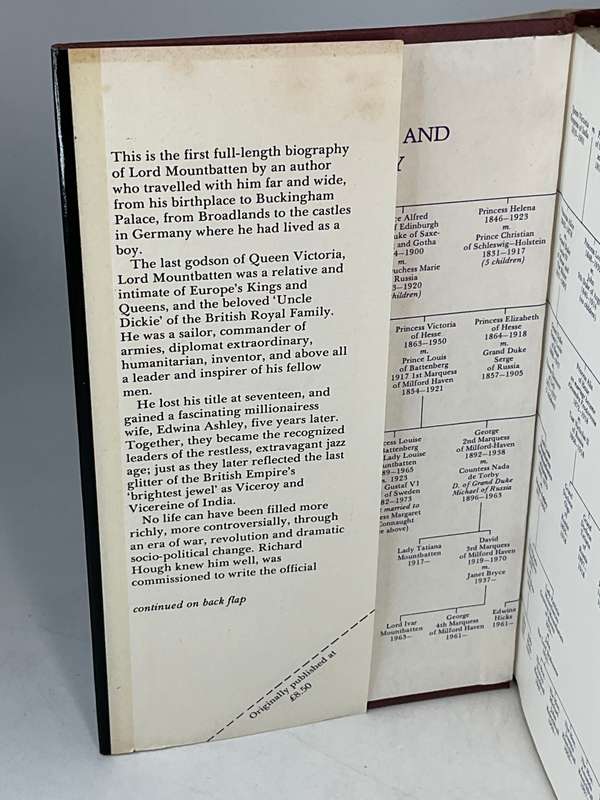 This is the first full-length biography
of Lord Mountbatten by an author
who travelled with him far and wide,
from his birthplace to Buckingham
Palace, from Broadlands to the castles
in Germany where he had lived as a
boy.
The last godson of Queen Victoria,
Lord Mountbatten was a relative and
intimate of Europe's Kings and
Queens, and the beloved 'Uncle
Dickie' of the British Royal Family.
He was a sailor, commander of
armies, diplomat extraordinary,
humanitarian, inventor, and above all
a leader and inspirer of his fellow
men.
He lost his title at seventeen, and
gained a fascinating millionairess
wife, Edwina Ashley, five years later.
Together, they became the recognized
leaders of the restless, extravagant jazz
age; just as they later reflected the last
glitter of the British Empire's
'brightest jewel' as Viceroy and
Vicereine of India.
No life can have been filled more
richly, more controversially, through
an era of war, revolution and dramatic
socio-political change. Richard
Hough knew him well, was
commissioned to write the official
continued on back flap
Originally published at
£8.50
AND
Y
Alfred
Edinburgh
of Saxe-
and Gotha
1900
m.
Marie
Russia
1920
Princess Helena
1846–1923
m.
Prince Christian
of Schleswig–Holstein
1831–1917
(5 children)
Princess Victoria
of Hesse
1863–1950
m.
Prince Louis
of Battenberg
1917 1st Marquess
of Milford Haven
1854–1921
Princess Elizabeth
of Hesse
1864–1918
m.
Grand Duke
Serge
of Russia
1857–1905
Louise
Lady Louise
1965
1923
Gustaf VI
of Sweden
1973
married to
Margaret
Connaught
above)
George
2nd Marquess
of Milford-Haven
1892–1938
m.
Countess Nada
de Torby
D. of Grand Duke
Michael of Russia
1896–1963
Lady Tatiana
Mountbatten
1917–
David
3rd Marquess
of Milford Haven
1919–1970
m.
Janet Bryce
1937–
Lord Ivar
Mountbatten
1963–
George
4th Marquess
of Milford Haven
1961–
Edwina
Hicks
1961–